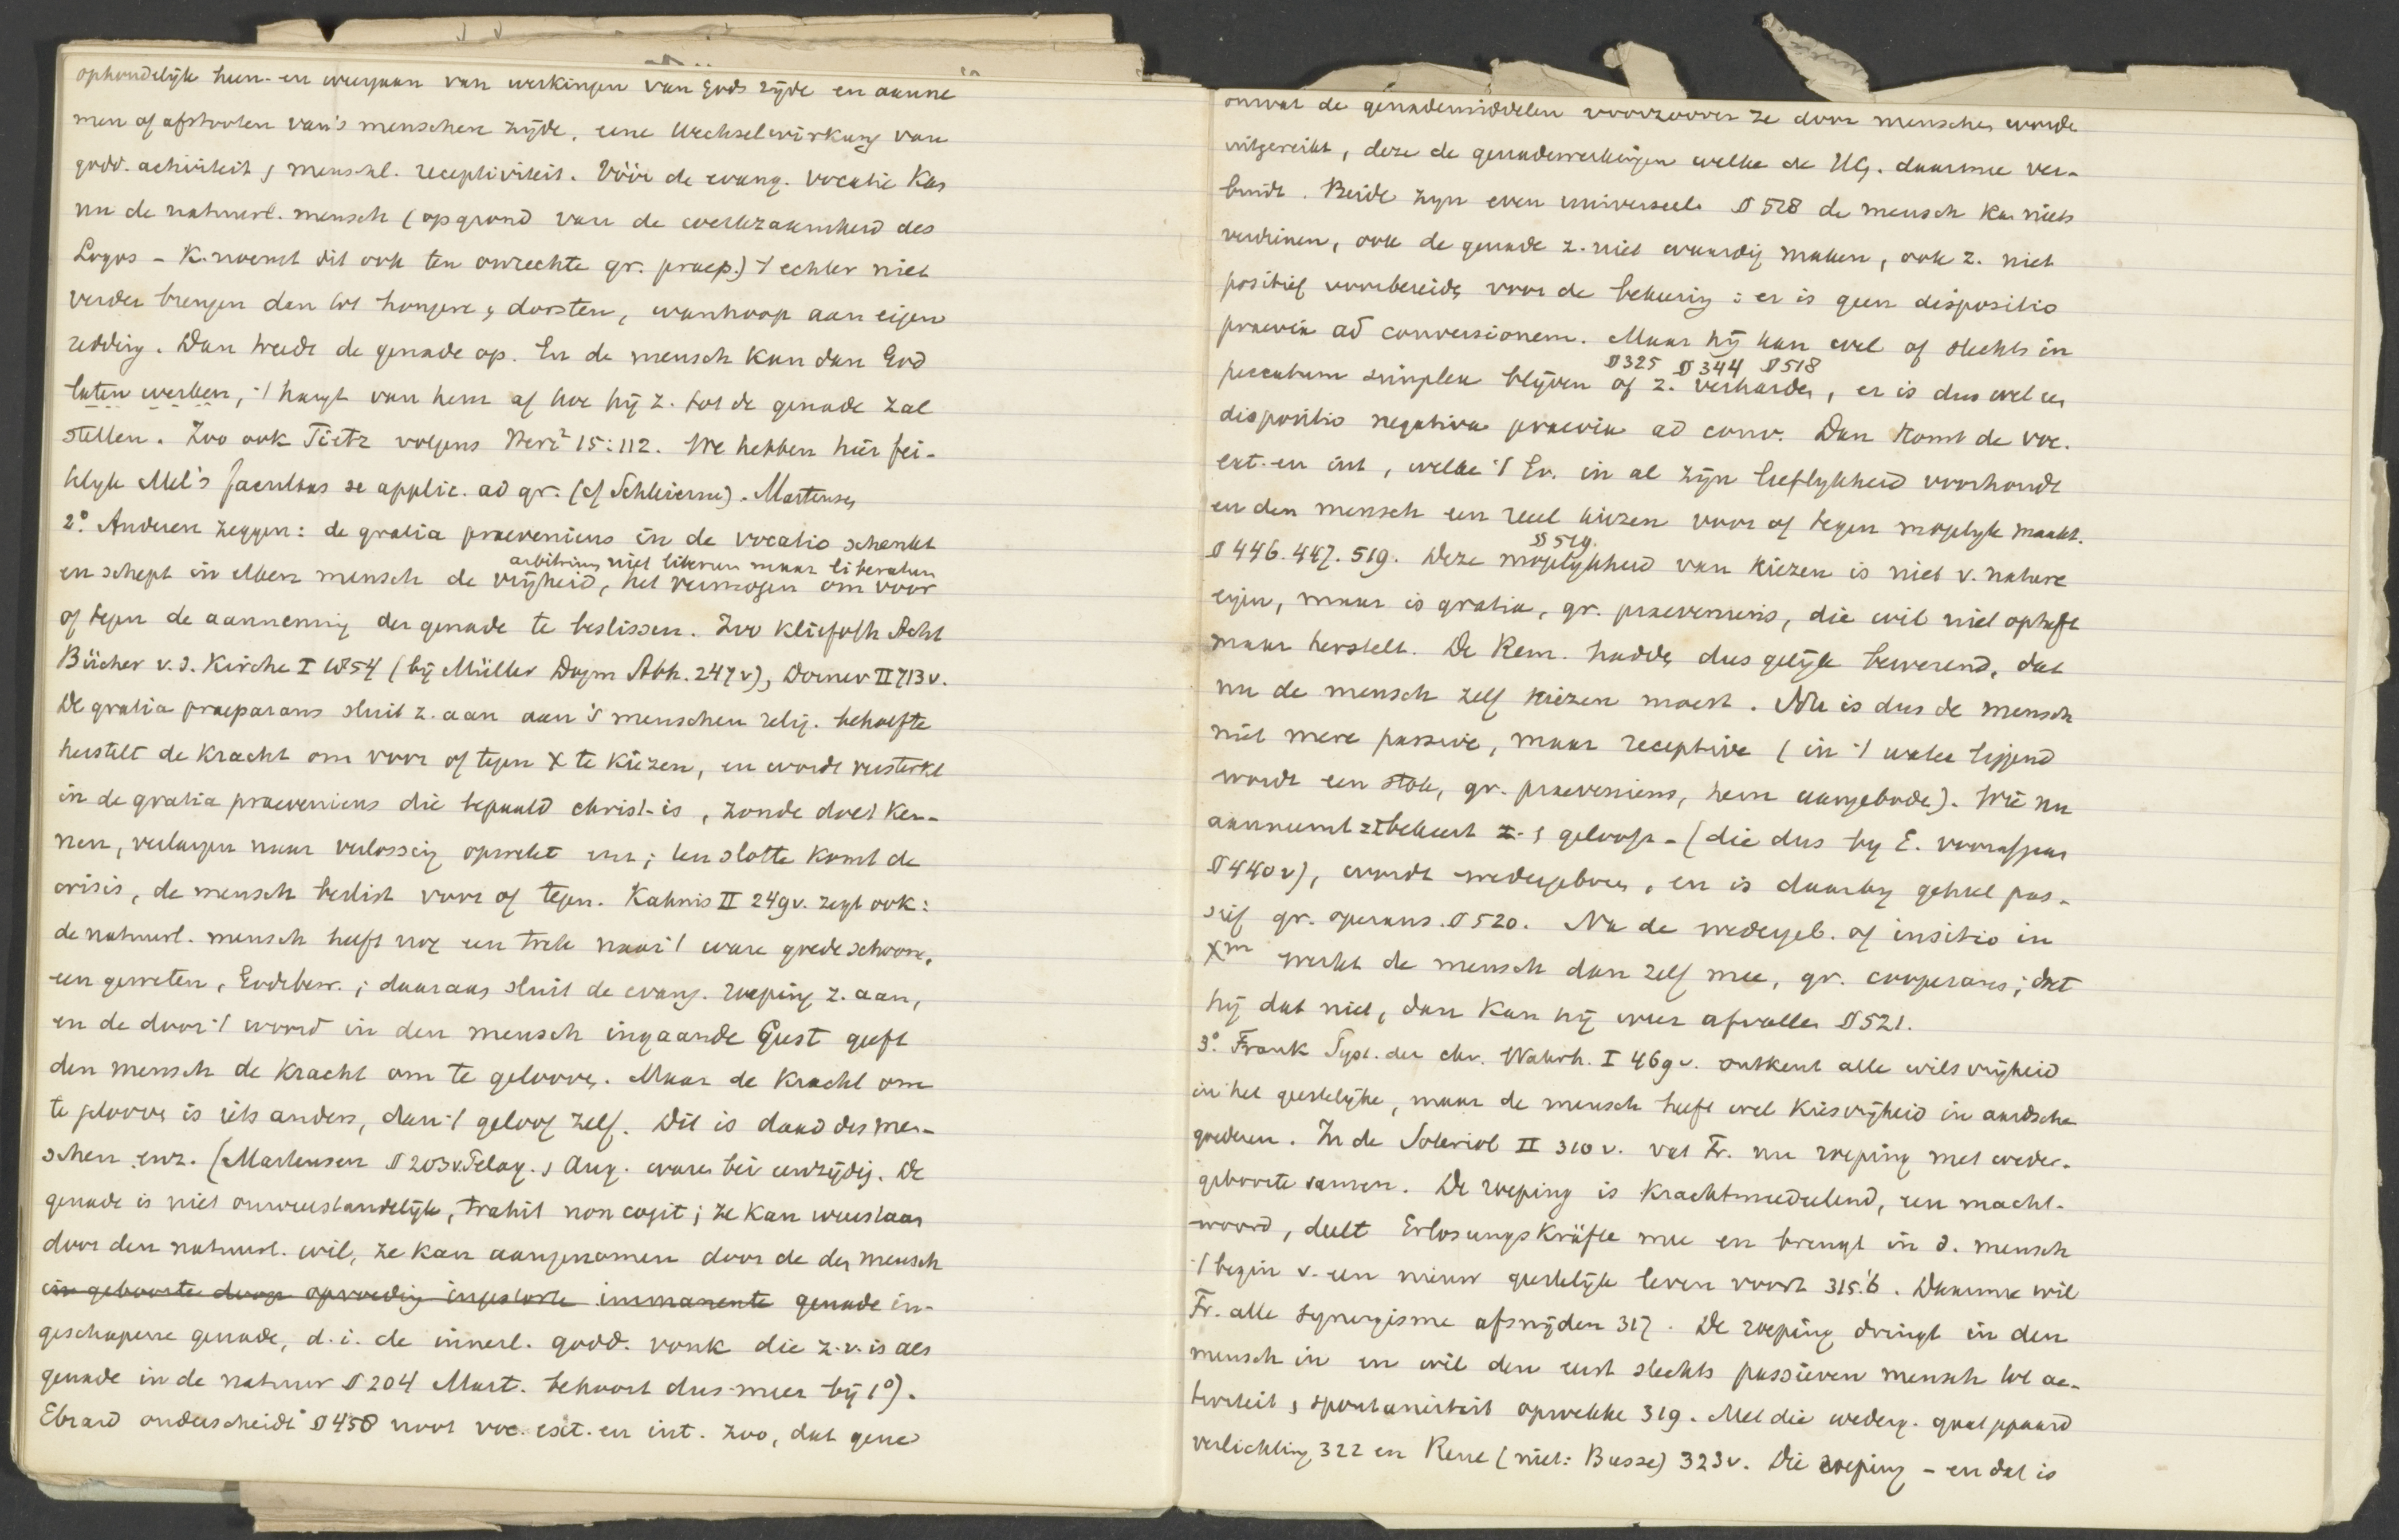 ophoudelijk heen- en weergaan van werkingen van Gods zijde en aanne
men of afstooten van 's menschen zijde, eene Wechselwirkung van
godd. activiteit & menschl. receptiviteit. Vóór de evang. vocatie kan
nu de natuurl. mensch (op grond van de werkzaamheid des
Logos - K. noemt dit ook ten onrechte gr. praep.) 't echter niet
verder brengen dan tot hongeren & dorsten, wanhoop aan eigen
redding. Dan treedt de genade op. En de mensch kan dan God
laten werken, 't hangt van hem af hoe hij z. tot de genade zal
stellen. Zoo ook Tietz volgens 15:112. We hebben hier fei-
telijk Mel's facultas se applic. ad gr. (cf Schleierm). Martensen
2° Anderen zeggen: de gratia praeveniens in de vocatio schenkt
arbitrium niet liberum maar liberatum
en schept in elken mensch de vrijheid, het vermogen om voor
of tegen de aanneming der genade te beslissen. Zoo Kliefoth Acht
Bücher v. d. Kirche I 1854 (bij Müller Dogm Abh. 247v), Dorner II 713v.
De gratia praeparans sluit z. aan aan 's menschen relig. behoefte
herstelt de kracht om voor of tegen X te kiezen, en wordt versterkt
in de gratia praeveniens die bepaald christ. is, zonde doet ken-
nen, verlangen naar verlossing opwekt enz; ten slotte komt de
crisis, de mensch beslist voor of tegen. Kahnis II 249v. zegt ook:
de natuurl. mensch heeft nog een trek naar 't ware goede schoone,
een geweten, Godsbew.; daaraan sluit de evang. roeping z. aan,
en de door 't woord in den mensch ingaande Geest geeft
den mensch de kracht om te gelooven. Maar de kracht om
te gelooven is iets anders, dan 't geloof zelf. Dit is daad des men-
schen enz. (Martensen § 203v. Pelag. & Aug. waren bei eenzijdig. De
genade is niet onweerstandelijk, trahit non cogit; ze kan weerstaan
door den natuurl. wil, ze kan aangenomen door de den mensch
in geboorte doop opvoeding ingestorte immanente genade in-
geschapene genade, d.i. de innerl. godd. vonk die z.v. is als
genade in de natuur § 204 Mart. behoort dus meer bij 1°).
Ebrard onderscheidt § 458 noot voc. ext. en int. zoo, dat gene
omvat de genademiddelen voorzoover ze door menschen worden
uitgereikt, deze de genadewerkingen welke de HG. daarmee ver-
bindt. Beide zijn even universeel. § 518 de mensch kan niets
verdienen, ook de genade z. niet waardig maken, ook z. niet
positief voorbereiden voor de bekeering: er is geen dispositio
praevia ad conversionem. Maar hij kan wel of slechts in
§ 325 § 344 § 518
peccatum simplex blijven of z. verharden, er is dus wel een
dispositio negativa praevia ad conv. Dan komt de voc.
ext. en int, welke 't Ev. in al zijn lieflijkheid voorhoudt
en den mensch een reëel kiezen voor of tegen mogelijk maakt.
§ 519.
§ 446. 447. 519. Deze mogelijkheid van kiezen is niet v. nature
eigen, maar is gratia, gr. praeveniens, die wil niet opheft
maar herstelt. De Rem. hadden dus gelijk bewerend, dat
nu de mensch zelf kiezen moest. Nu is dus de mensch
niet mere passive, maar receptive (in 't water liggend
wordt een stok, gr. praeveniens, hem aangeboden). Wie nu
aanneemt zbekeert z. & gelooft - (die dus bij E. voorafgaan
§ 440v), wordt wedergeboren, en is daarbij geheel pas-
sief gr. operans. § 520. Na de wedergeb. of insitio in
Xm werkt de mensch dan zelf mee, gr. cooperans; doet
hij dat niet, dan kan hij weer afvallen § 521.
3° Frank Syst. der chr. Wahrh. I 469v. ontkent alle wilsvrijheid
in het geestelijke, maar de mensch heeft wel kiesvrijheid in aardsche
goederen. In de Soteriol II 310v. vat Fr. nu roeping met weder-
geboorte samen. De roeping is krachtmededeelend, een macht-
woord, deelt Erlosungskräfte mee en brengt in d. mensch
't begin v. een nieuw geestelijk leven voort 315.'6. Daarmee wil
Fr. alle synergisme afsnijden 317. De roeping dringt in den
mensch in en wil den eerst slechts passieven mensch tot ac-
tiviteit & spontaniteit opwekken 319. Met die wederg. gaat gepaard
verlichting 322 en Reue (niet: Busse) 323v. Die roeping - en dat is